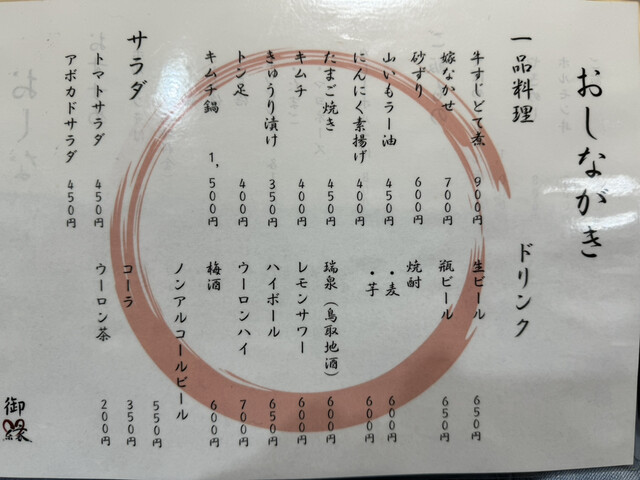 おしながき
一品料理
牛すじどて煮 900円
嫁なかせ 700円
砂ずり 600円
山いもラー油 450円
にんにく素揚げ 400円
たまご焼き 450円
キムチ 400円
きゅうり漬け 350円
トン足 400円
キムチ鍋 1,500円
サラダ
トマトサラダ 450円
アボカドサラダ 450円
ドリンク
生ビール 650円
瓶ビール 650円
焼酎
・麦 600円
・芋 600円
瑞泉(鳥取地酒) 600円
レモンサワー 600円
ハイボール 650円
ウーロンハイ 700円
梅酒 600円
ノンアルコールビール 550円
コーラ 350円
ウーロン茶 200円
御縁